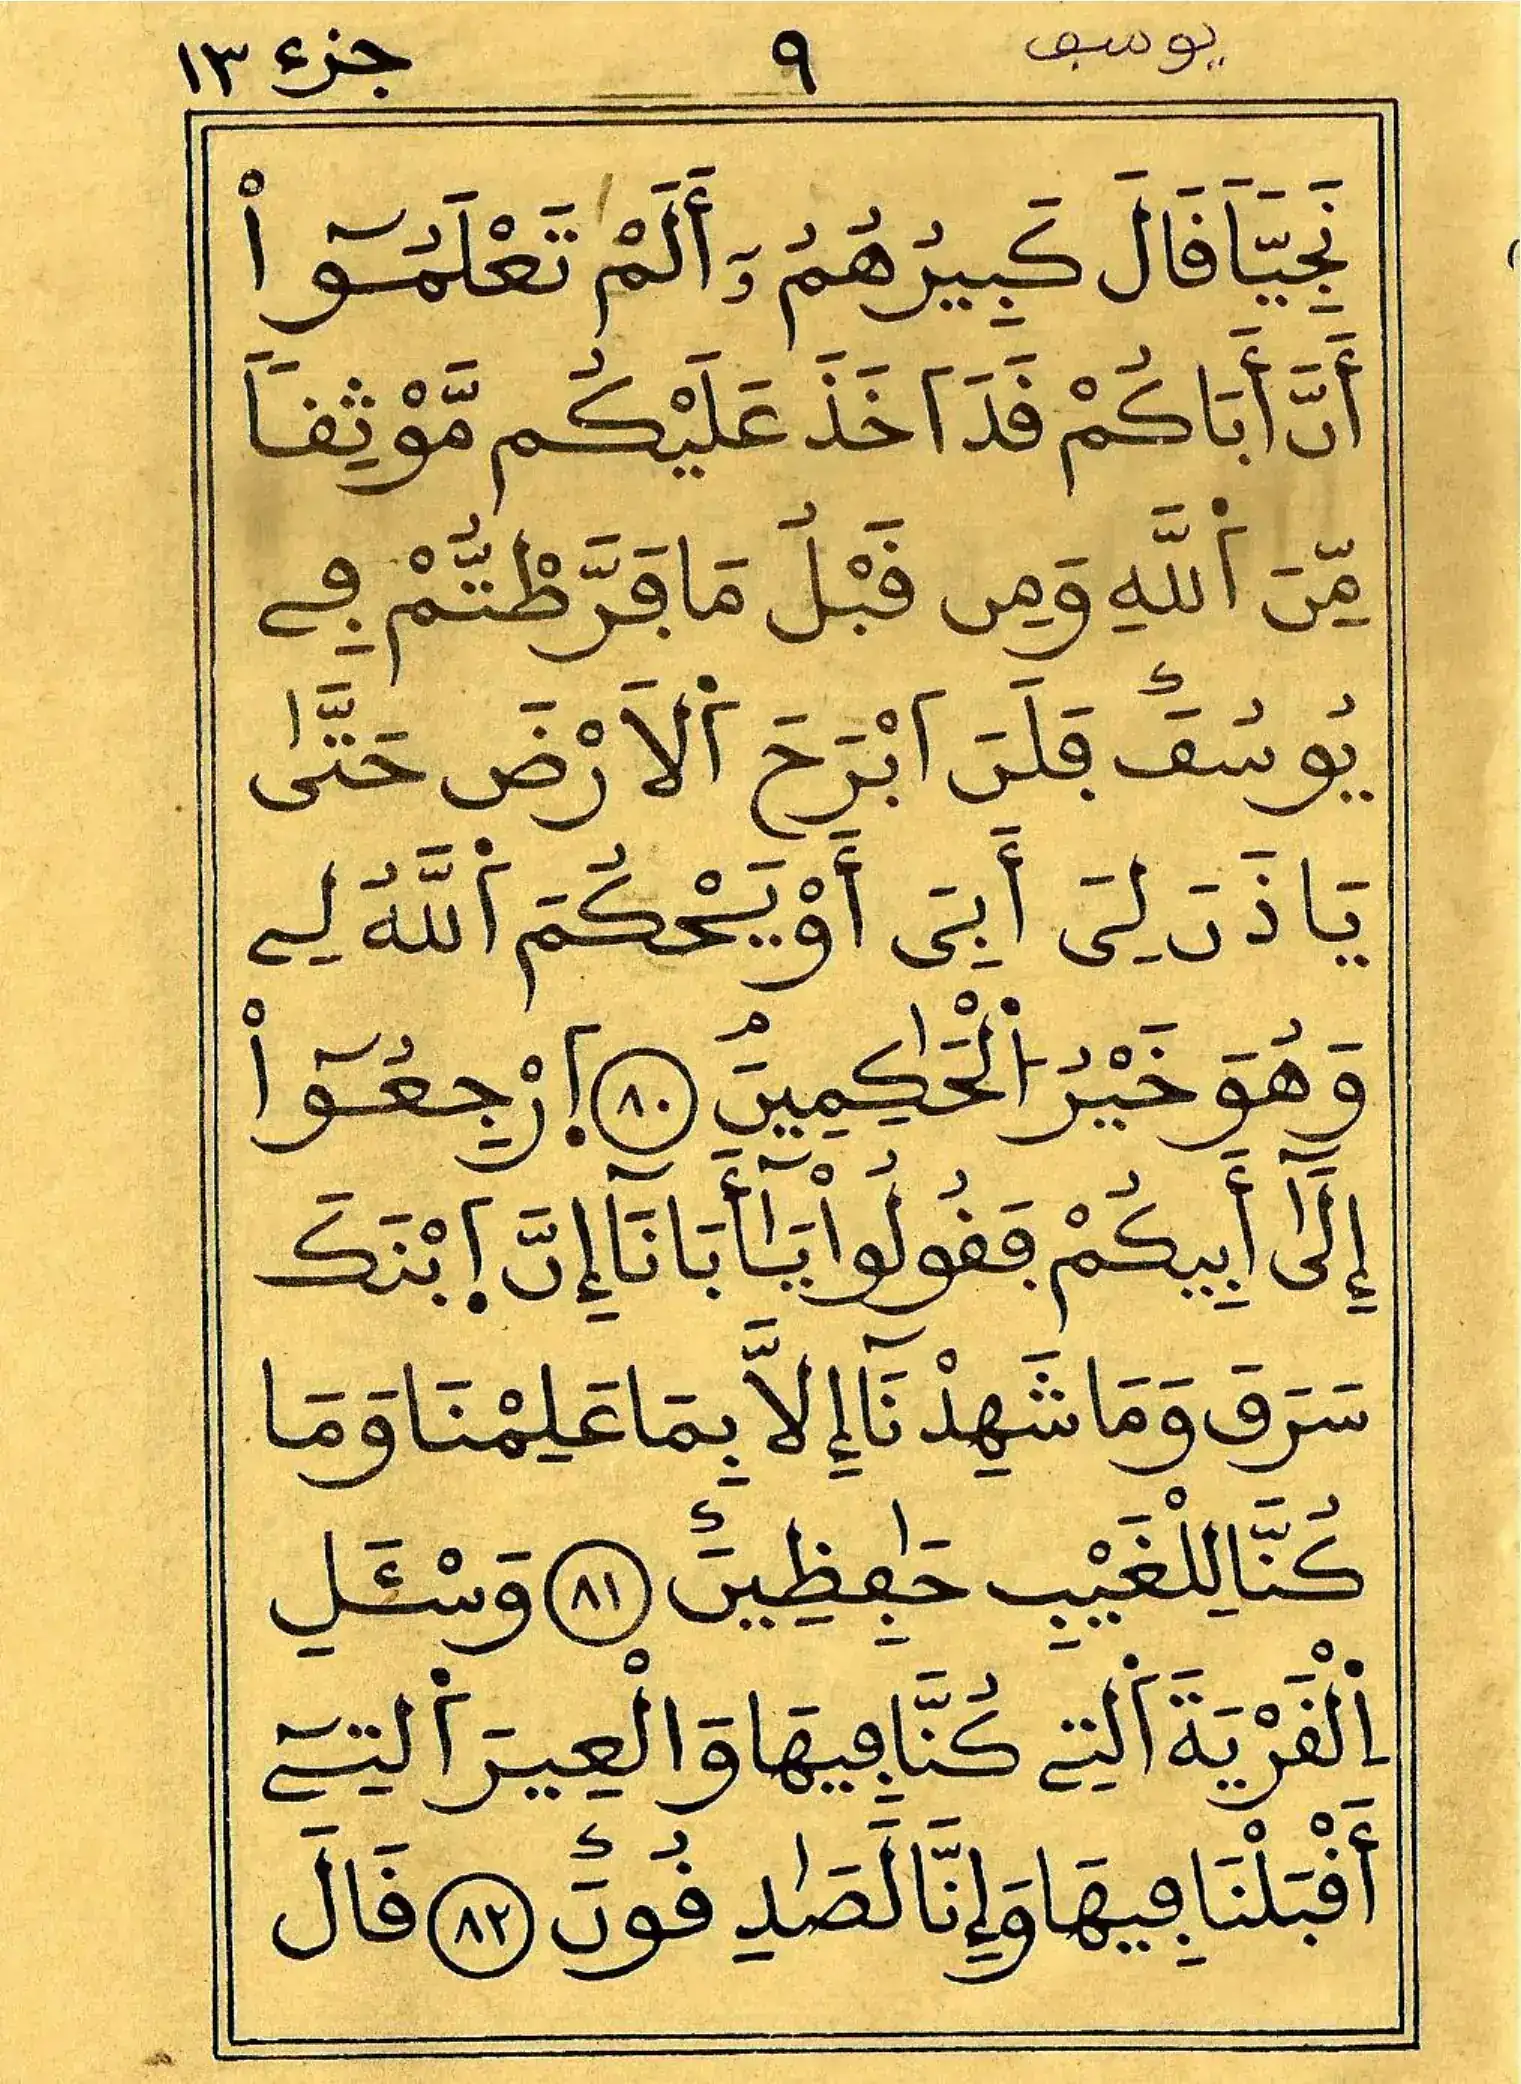 يوسف ٩ جزء ١٣
نَجِيّاٗ فَالَ كَبِيرُهُمُۥٓ أَلَمْ تَعْلَمُوٓاْ
أَنَّ أَبَاكُمْ فَدَ اَخَذَ عَلَيْكُم مَّوْثِفاٗ
مِّنَ اَ۬للَّهِ وَمِن فَبْلُ مَا فَرَّطْتُّمْ فِے
يُوسُفَۖ فَلَنَ اَبْرَحَ اَ۬لَارْضَ حَتَّىٰ
يَاذَنَ لِىَ أَبِىَ أَوْ يَحْكُمَ اَ۬للَّهُ لِے
وَهُوَ خَيْرُ اُ۬لْحَٰكِمِينَۖ ٨٠ اِ۪رْجِعُوٓاْ
إِلَىٰٓ أَبِيكُمْ فَفُولُواْ يَٰٓأَبَانَآ إِنَّ اَ۪بْنَكَ
سَرَقَ وَمَا شَهِدْنَآ إِلَّا بِمَا عَلِمْنَا وَمَا
كُنَّا لِلْغَيْبِ حَٰفِظِينَۖ ٨١ وَسْـَٔلِ
اِ۬لْفَرْيَةَ اَ۬لتِے كُنَّا فِيهَا وَالْعِيرَ اَ۬لتِےٓ
أَفْبَلْنَا فِيهَا وَإِنَّا لَصَٰدِفُونَۖ ٨٢ فَالَ